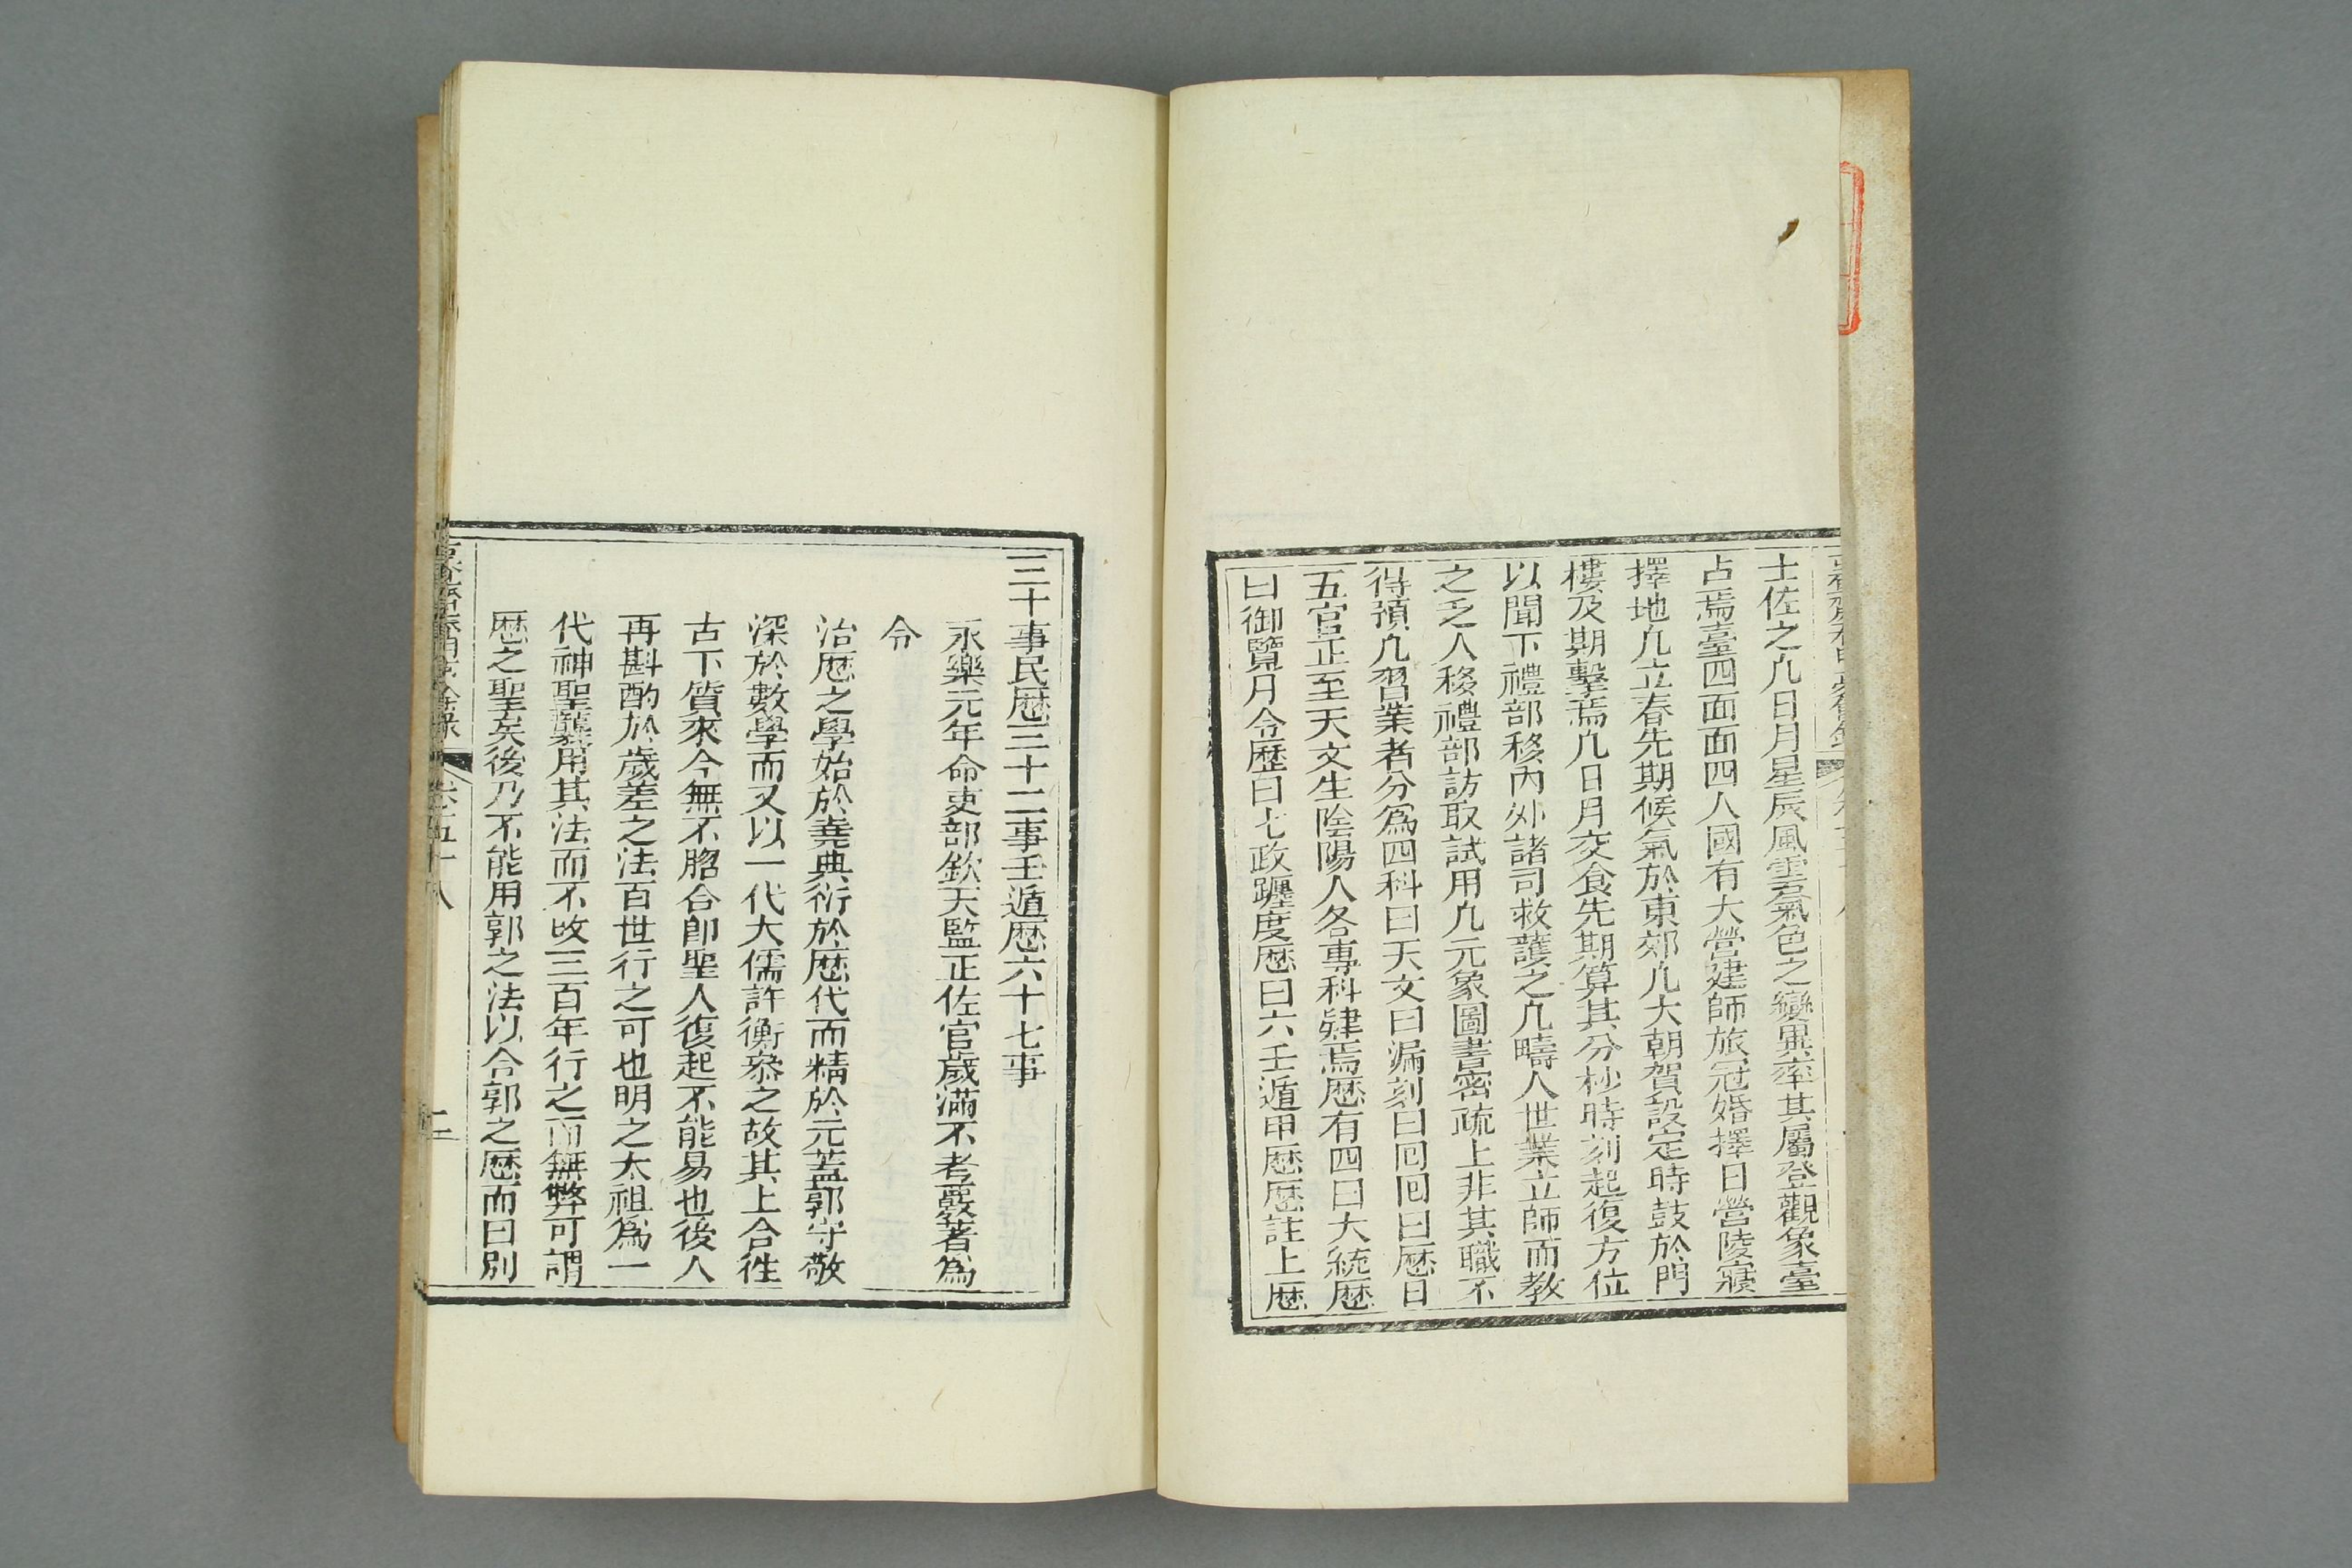 士佐之凢日月星辰風雲氣色之變異率其屬登觀象臺
占焉臺四面面四人國有大營建師旅冠婚擇日營陵寢
擇地凢立春先期候氣於東郊凢大朝賀設定時鼓於門
樓及期擊焉凢日月交食先期算其分杪時刻起復方位
以聞下禮部移內外諸司救護之凢疇人世業立師而教
之乏人移禮部訪取試用凢元象圖書密疏上非其職不
得預凢習業者分為四科曰天文曰漏刻曰回回曰歷日
五官正至天文生陰陽人各專科肄焉歷有四曰大統歷
曰御覽月令歷曰七政躔度歷曰六壬遁甲歷歷註上歷
三十事民歷三十二事壬遁歷六十七事
永樂元年命吏部欽天監正佐官歲滿不考覈著為
令
治歷之學始於堯典衍於歷代而精於元蓋郭守敬
深於數學而又以一代大儒許衡叅之故其上合徃
古下質來今無不脗合卽聖人復起不能易也後人
再斟酌於歲差之法百世行之可也明之太祖為一
代神聖襲用其法而不改三百年行之而無弊可謂
歷之聖矣後乃不能用郭之法以合郭之歷而曰別
春明夢餘錄 卷五十八 二